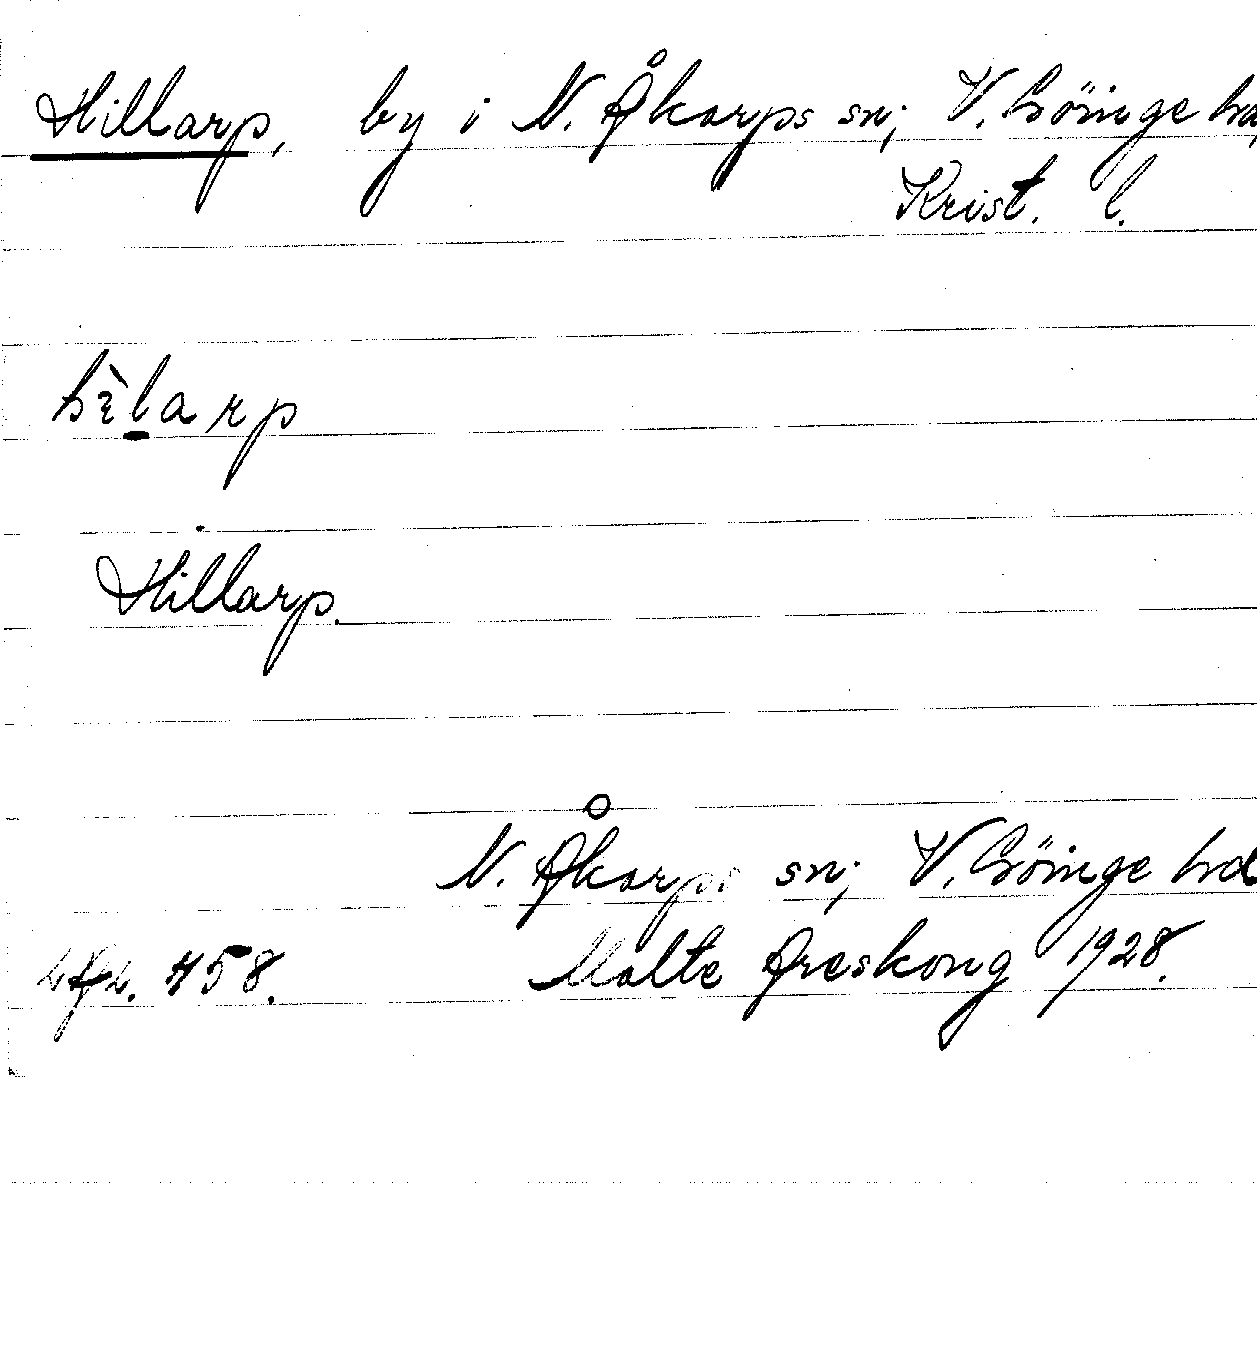 Hillarp, by i N. Åkarps sn; V. Göinge hd,
Krist. l.
hìlarp
Hillarp.
N. Åkarps sn; V. Göinge hd
458. Malte Areskong 1928.